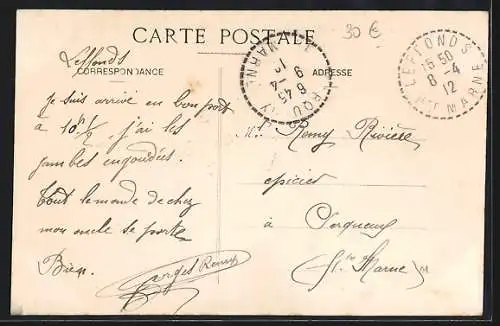 CARTE POSTALE
30 €
Leffonds
CORRESPONDANCE
ADRESSE
LEFFONDS
15 50
8 - 4
12
HTE MARNE
MARNE
6 45
9 - 4
12
Je suis arrivé en bon port
à 10h 1/2, j'ai les
jambes engourdies.
Tout le monde de chez
mon oncle se porte
Bien.
Georges Remy
Mr Remy Rivière
epicier
à Serqueux
(Hte Marne)